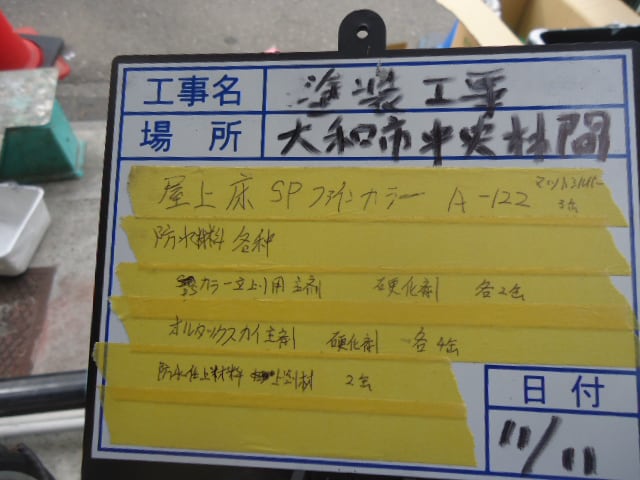 工事名 塗装工事
場所 大和市中央林間
屋上床 SPファインカラー A-122 マットシルバー 3缶
防水材料各種
カラー立上り用主剤 硬化剤 各2缶
オルタックスカイ主剤 硬化剤 各4缶
防水仕上材料 2缶
日付
11/11